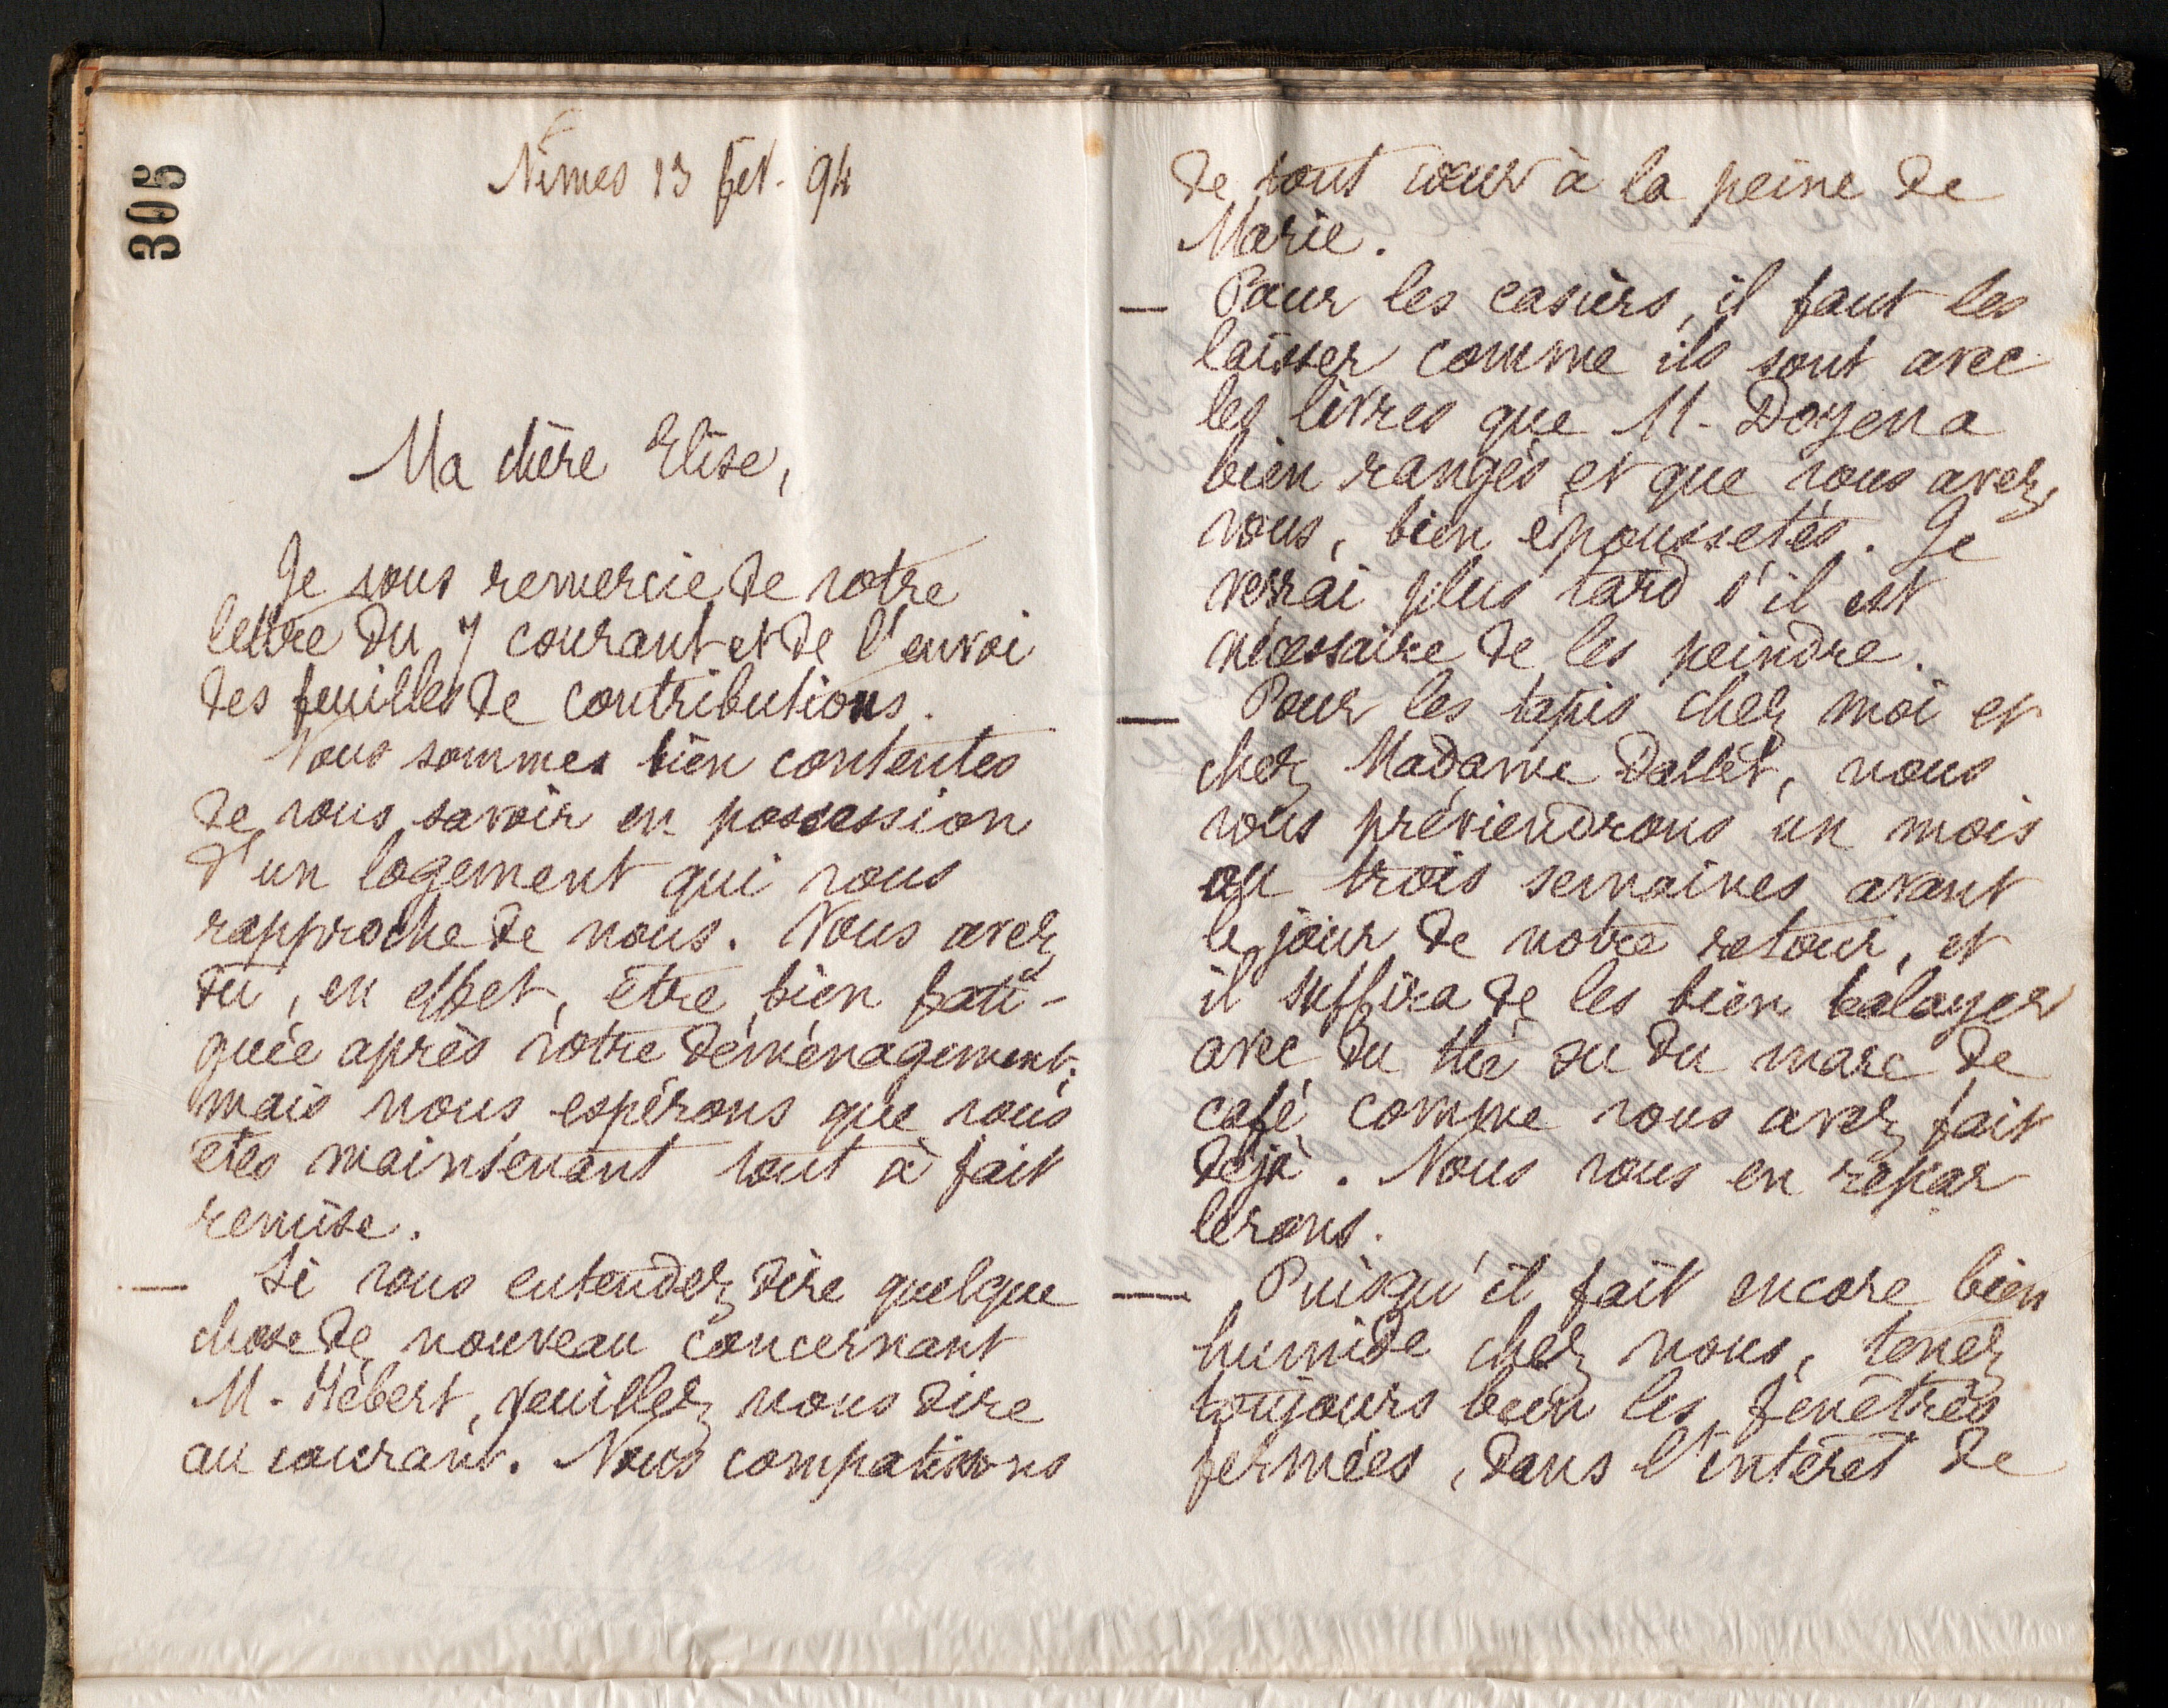 305
Nîmes 13 fév. 94
Ma chère Elise,
Je vous remercie de votre
lettre du 7 courant et de l'envoi
des feuilles de contributions.
Nous sommes bien contentes
de vous savoir en possession
d'un logement qui vous
rapproche de nous. Vous avez
dû, en effet, être bien fati-
guée après votre déménagement;
mais nous espérons que vous
êtes maintenant tout à fait
remise.
— Si vous entendez dire quelque
chose de nouveau concernant
M. Hébert, veuillez nous dire
au courant. Nous compatissons
de tout cœur à la peine de
Marie.
— Pour les casiers, il faut les
laisser comme ils sont avec
les livres que M. Doyen a
bien rangés et que vous avez,
vous, bien époussetés. Je
verrai plus tard s'il est
nécessaire de les peindre.
— Pour les tapis chez moi et
chez Madame Dallet, nous
vous préviendrons un mois
ou trois semaines avant
le jour de notre retour, et
il suffira de les bien balayer
avec du thé ou du marc de
café comme vous avez fait
déjà. Nous vous en repar
lerons.
— Puisqu'il fait encore bien
humide chez nous, tenez
toujours bien les fenêtres
fermées, dans l'intérêt de